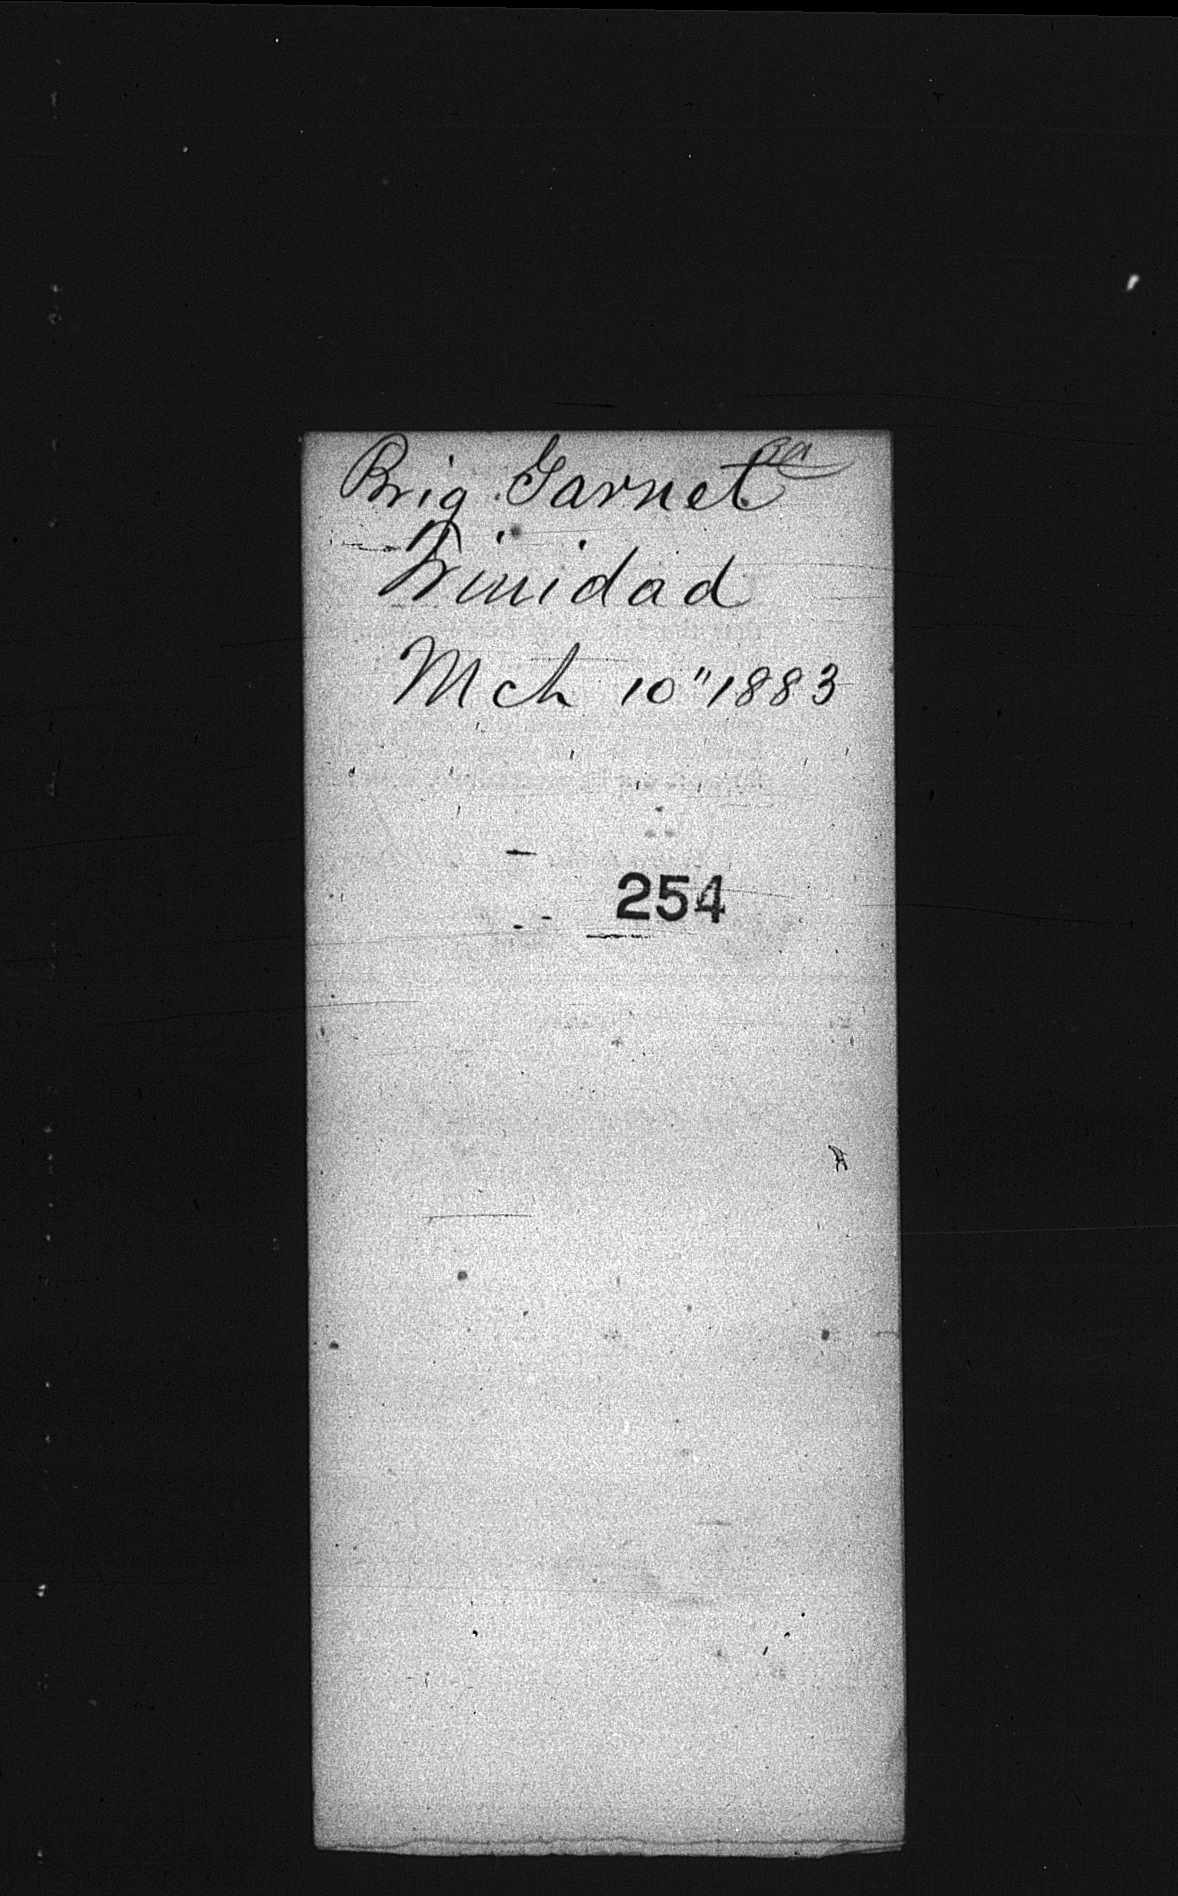 Brig Garnet
Trinidad
Mch 10" 1883
254